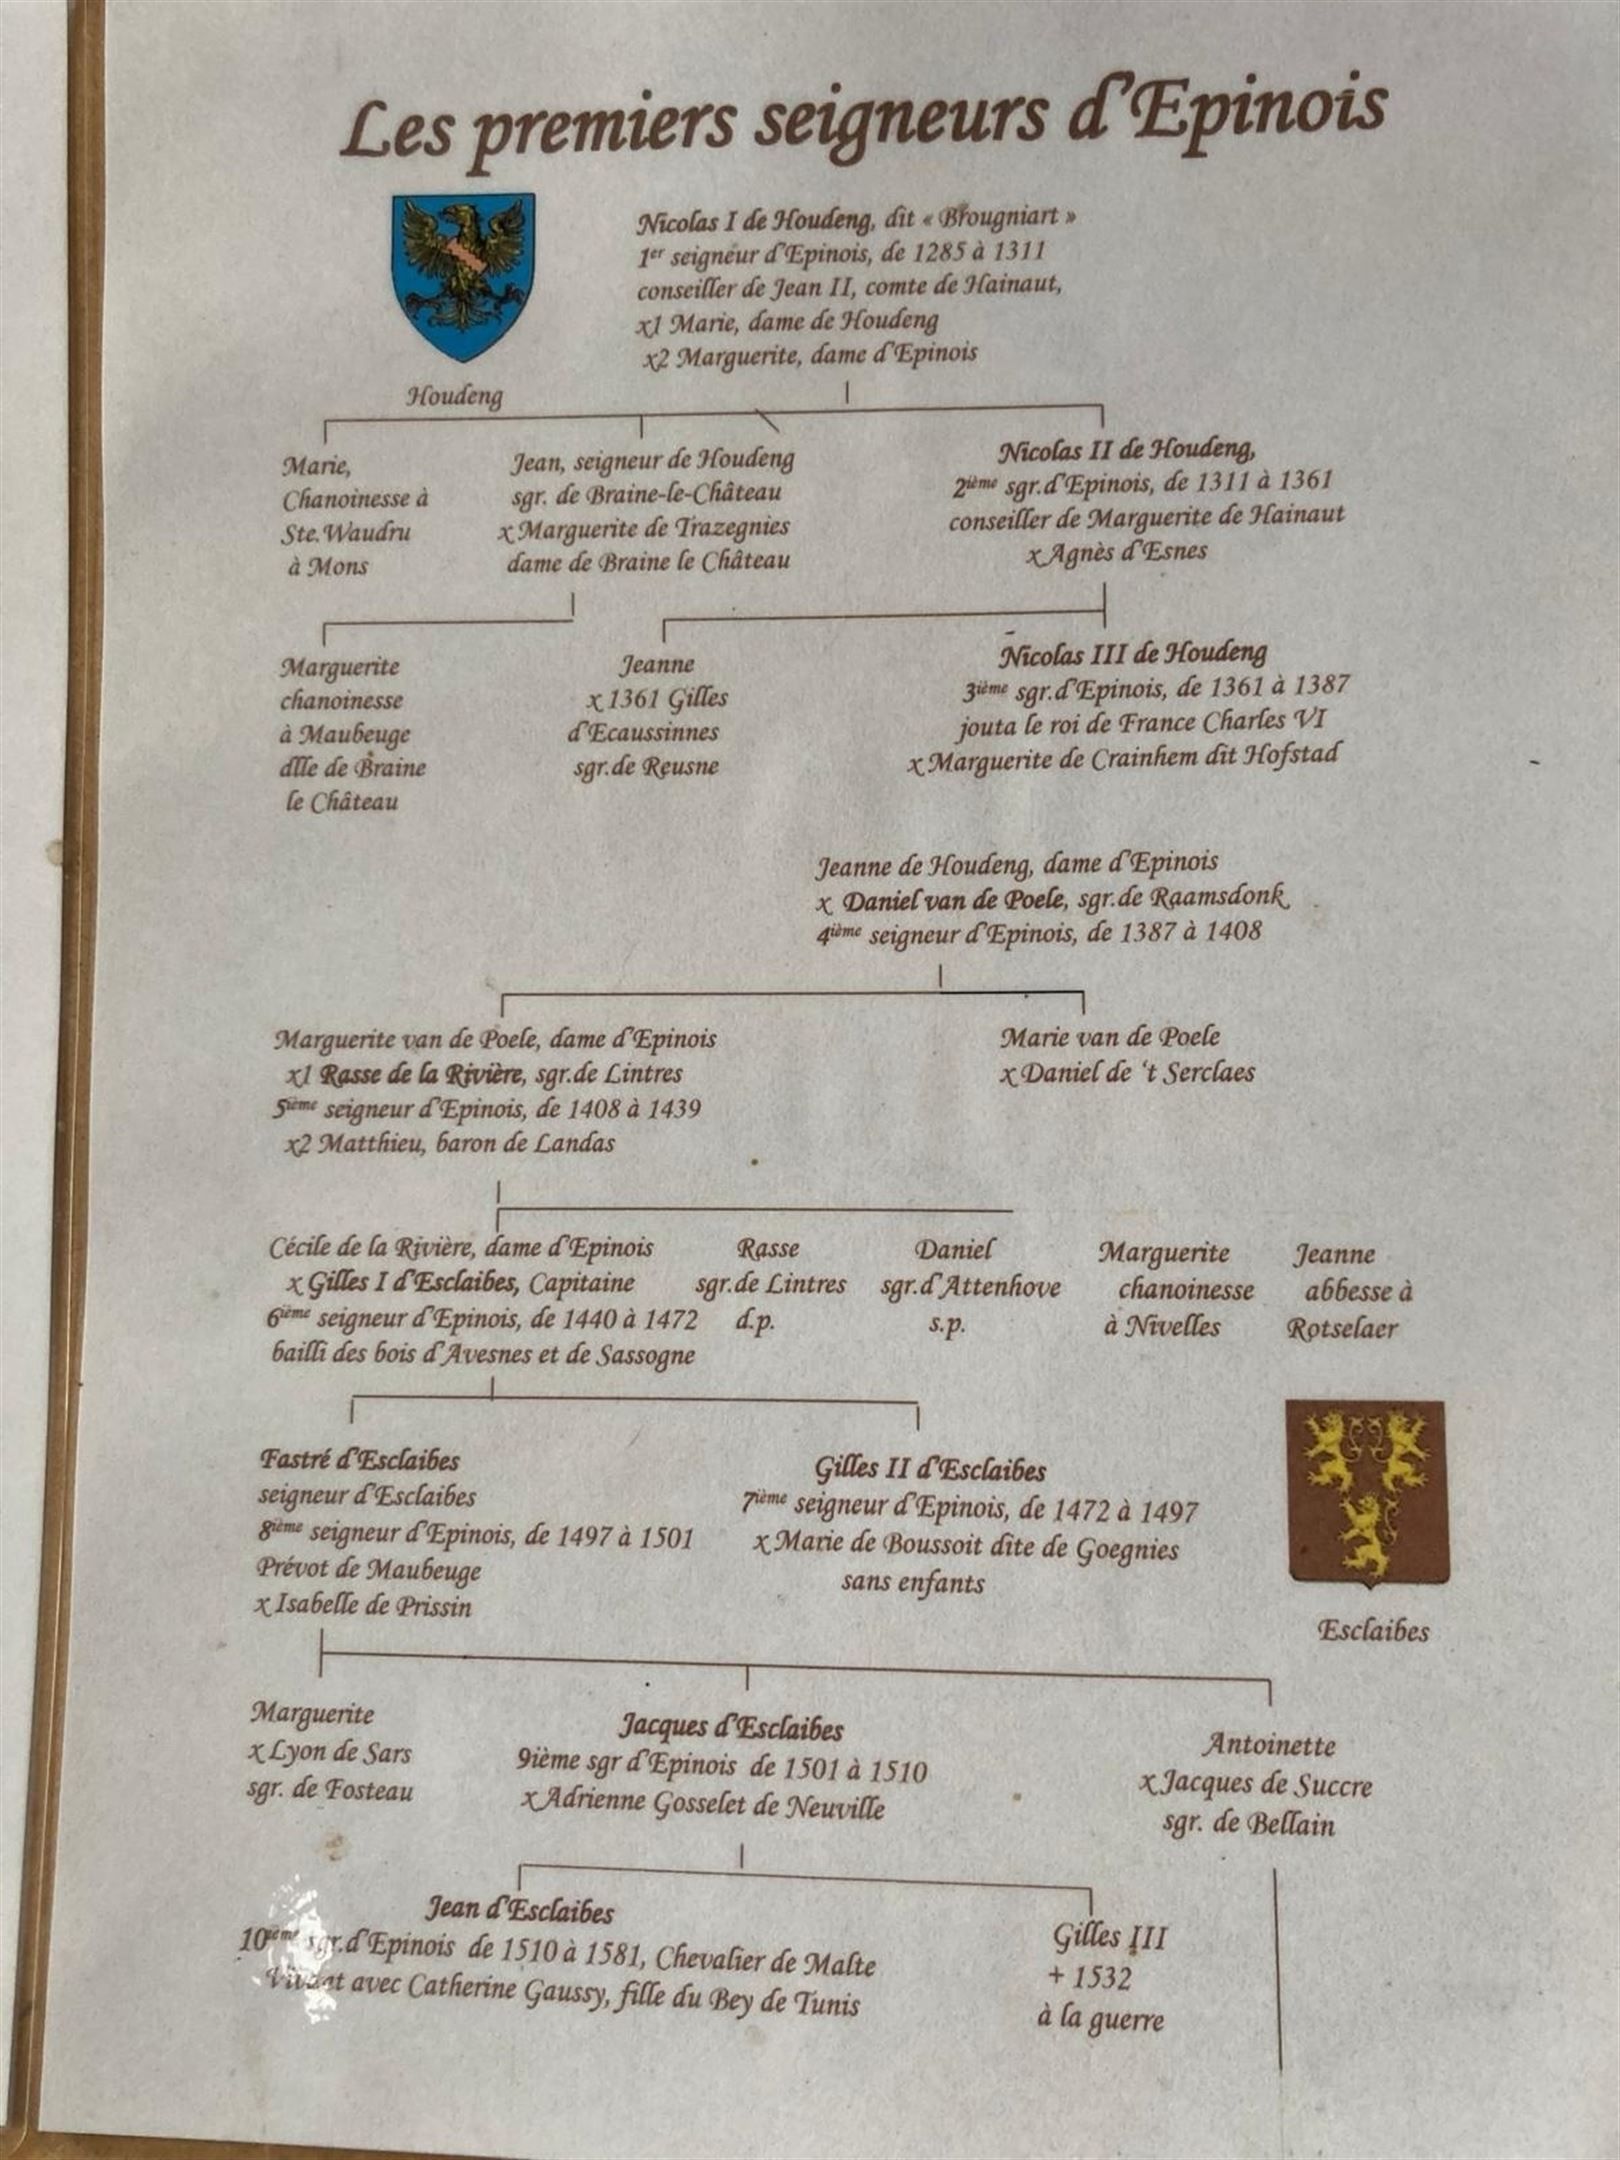 Les premiers seigneurs d'Epinois
Nicolas I de Houdeng, dit « Brougniart »
1er seigneur d'Epinois, de 1285 à 1311
conseiller de Jean II, comte de Hainaut,
x1 Marie, dame de Houdeng
x2 Marguerite, dame d'Epinois
Houdeng
Marie,
Chanoinesse à
Ste.Waudru
à Mons
Jean, seigneur de Houdeng
sgr. de Braine-le-Château
x Marguerite de Trazegnies
dame de Braine le Château
Nicolas II de Houdeng,
2ième sgr.d'Epinois, de 1311 à 1361
conseiller de Marguerite de Hainaut
x Agnès d'Esnes
Marguerite
chanoinesse
à Maubeuge
dlle de Braine
le Château
Jeanne
x 1361 Gilles
d'Ecaussinnes
sgr.de Reusne
Nicolas III de Houdeng
3ième sgr.d'Epinois, de 1361 à 1387
jouta le roi de France Charles VI
x Marguerite de Crainhem dit Hofstad
Jeanne de Houdeng, dame d'Epinois
x Daniel van de Poele, sgr.de Raamsdonk
4ième seigneur d'Epinois, de 1387 à 1408
Marguerite van de Poele, dame d'Epinois
x1 Rasse de la Rivière, sgr.de Lintres
5ième seigneur d'Epinois, de 1408 à 1439
x2 Matthieu, baron de Landas
Marie van de Poele
x Daniel de 't Serclaes
Cécile de la Rivière, dame d'Epinois
x Gilles I d'Esclaibes, Capitaine
6ième seigneur d'Epinois, de 1440 à 1472
bailli des bois d'Avesnes et de Sassogne
Rasse
sgr.de Lintres
d.p.
Daniel
sgr.d'Attenhove
s.p.
Marguerite
chanoinesse
à Nivelles
Jeanne
abbesse à
Rotselaer
Fastré d'Esclaibes
seigneur d'Esclaibes
8ième seigneur d'Epinois, de 1497 à 1501
Prévot de Maubeuge
x Isabelle de Prissin
Gilles II d'Esclaibes
7ième seigneur d'Epinois, de 1472 à 1497
x Marie de Boussoit dite de Goegnies
sans enfants
Esclaibes
Marguerite
x Lyon de Sars
sgr. de Fosteau
Jacques d'Esclaibes
9ième sgr d'Epinois de 1501 à 1510
x Adrienne Gosselet de Neuville
Antoinette
x Jacques de Succre
sgr. de Bellain
Jean d'Esclaibes
10ième sgr.d'Epinois de 1510 à 1581, Chevalier de Malte
Vivant avec Catherine Gaussy, fille du Bey de Tunis
Gilles III
+ 1532
à la guerre